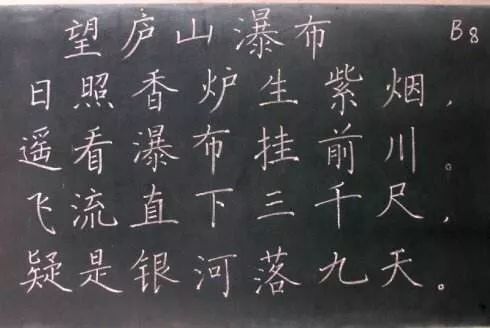 望庐山瀑布 B8
日照香炉生紫烟，
遥看瀑布挂前川。
飞流直下三千尺，
疑是银河落九天。